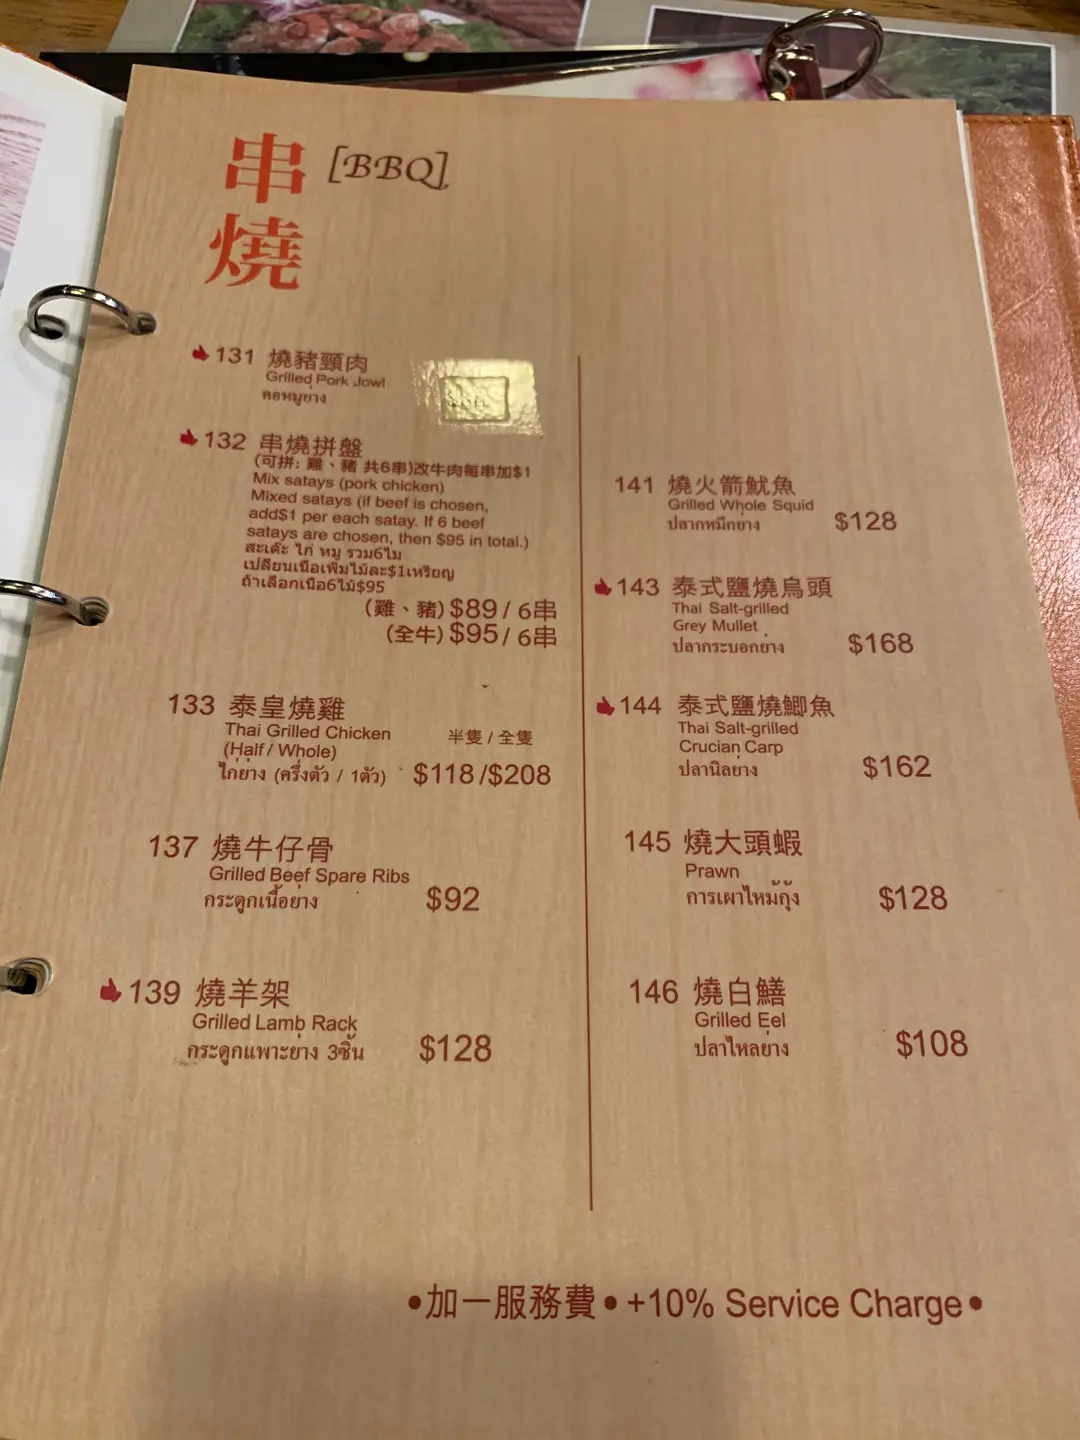 串燒 [BBQ]
131 燒豬頸肉
Grilled Pork Jowl
คอหมูย่าง
132 串燒拼盤
(可拼: 雞、豬 共6串)改牛肉每串加$1
Mix satays (pork chicken)
Mixed satays (if beef is chosen,
add$1 per each satay. If 6 beef
satays are chosen, then $95 in total.)
สะเต๊ะ ไก่ หมู รวม6ไม้
เปลี่ยนเนื้อเพิ่มไม้ละ$1เหรียญ
ถ้าเลือกเนื้อ6ไม้$95
(雞、豬) $89 / 6串
(全牛) $95 / 6串
133 泰皇燒雞
Thai Grilled Chicken
(Half / Whole)
半隻 / 全隻
ไก่ย่าง (ครึ่งตัว / 1ตัว)
$118 /$208
137 燒牛仔骨
Grilled Beef Spare Ribs
กระดูกเนื้อย่าง
$92
139 燒羊架
Grilled Lamb Rack
กระดูกแพะย่าง 3ชิ้น
$128
141 燒火箭魷魚
Grilled Whole Squid
ปลาหมึกย่าง
$128
143 泰式鹽燒烏頭
Thai Salt-grilled
Grey Mullet
ปลากระบอกย่าง
$168
144 泰式鹽燒鯽魚
Thai Salt-grilled
Crucian Carp
ปลานิลย่าง
$162
145 燒大頭蝦
Prawn
การเผาไหม้กุ้ง
$128
146 燒白鱔
Grilled Eel
ปลาไหลย่าง
$108
•加一服務費• +10% Service Charge•